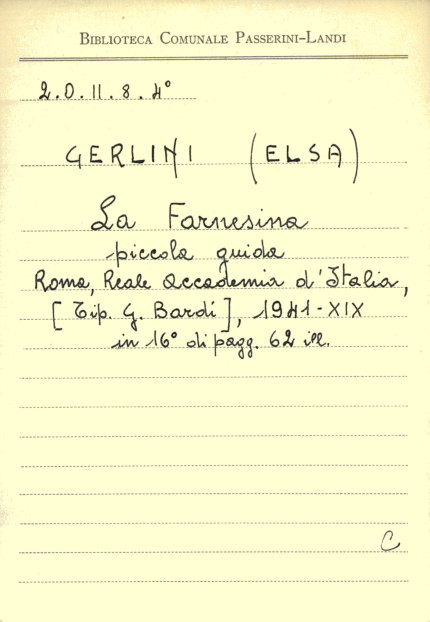 BIBLIOTECA COMUNALE PASSERINI-LANDI
2.0.11.8.4°
GERLINI (ELSA)
La Farnesina
piccola guida
Roma, Reale Accademia d'Italia,
[Tip. G. Bardi], 1941-XIX
in 16° di pagg. 62 ill.
C